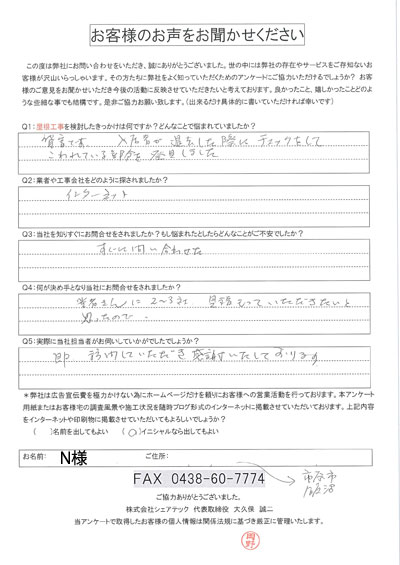 お客様のお声をお聞かせください
この度は弊社にお問い合わせをいただき、誠にありがとうございました。世の中には弊社の存在やサービスをご存知ないお
客様が沢山いらっしゃいます。その方たちに弊社をよく知っていただくためのアンケートにご協力いただけるでしょうか? お客
様のご意見をお聞かせいただき今後の活動に反映させていただきたいと考えております。良かったこと、嬉しかったことどのよ
うな些細な事でも結構です。是非ご協力お願い致します。(出来るだけ具体的に書いていただければ幸いです)
Q1:屋根工事を検討したきっかけは何ですか?どんなことで悩まれていましたか?
賃貸です。 入居者が退去した際にチェックをして
こわれている部分を発見しました
Q2:業者や工事会社をどのように探されましたか?
インターネット
Q3:当社を知りすぐにお問合せをされましたか?もし悩まれたとしたらどんなことがご不安でしたか?
すぐに問い合わせた
Q4:何が決め手となり当社にお問合せをされましたか?
業者さんに2~3社 見積もっていただきたいと
思ったので。
Q5:実際に当社担当者がお伺いしていかがでしたでしょうか?
即 対応していただき感謝いたしております
*弊社は広告宣伝費を極力かけない為にホームページだけを頼りにお客様への営業活動を行っております。本アンケート
用紙またはお客様宅の調査風景や施工状況を随時ブログ形式のインターネットに掲載させていただいております。上記内容
をインターネットや印刷物に掲載させていただいてもよろしいでしょうか?
( )名前を出してもよい (○)イニシャルなら出してもよい
お名前: N様 ご住所:
市原市
飯沼
FAX 0438-60-7774
ご協力ありがとうございました。
株式会社シェアテック 代表取締役 大久保 誠二
当アンケートで取得したお客様の個人情報は関係法規に基づき厳正に管理いたします。
岡野